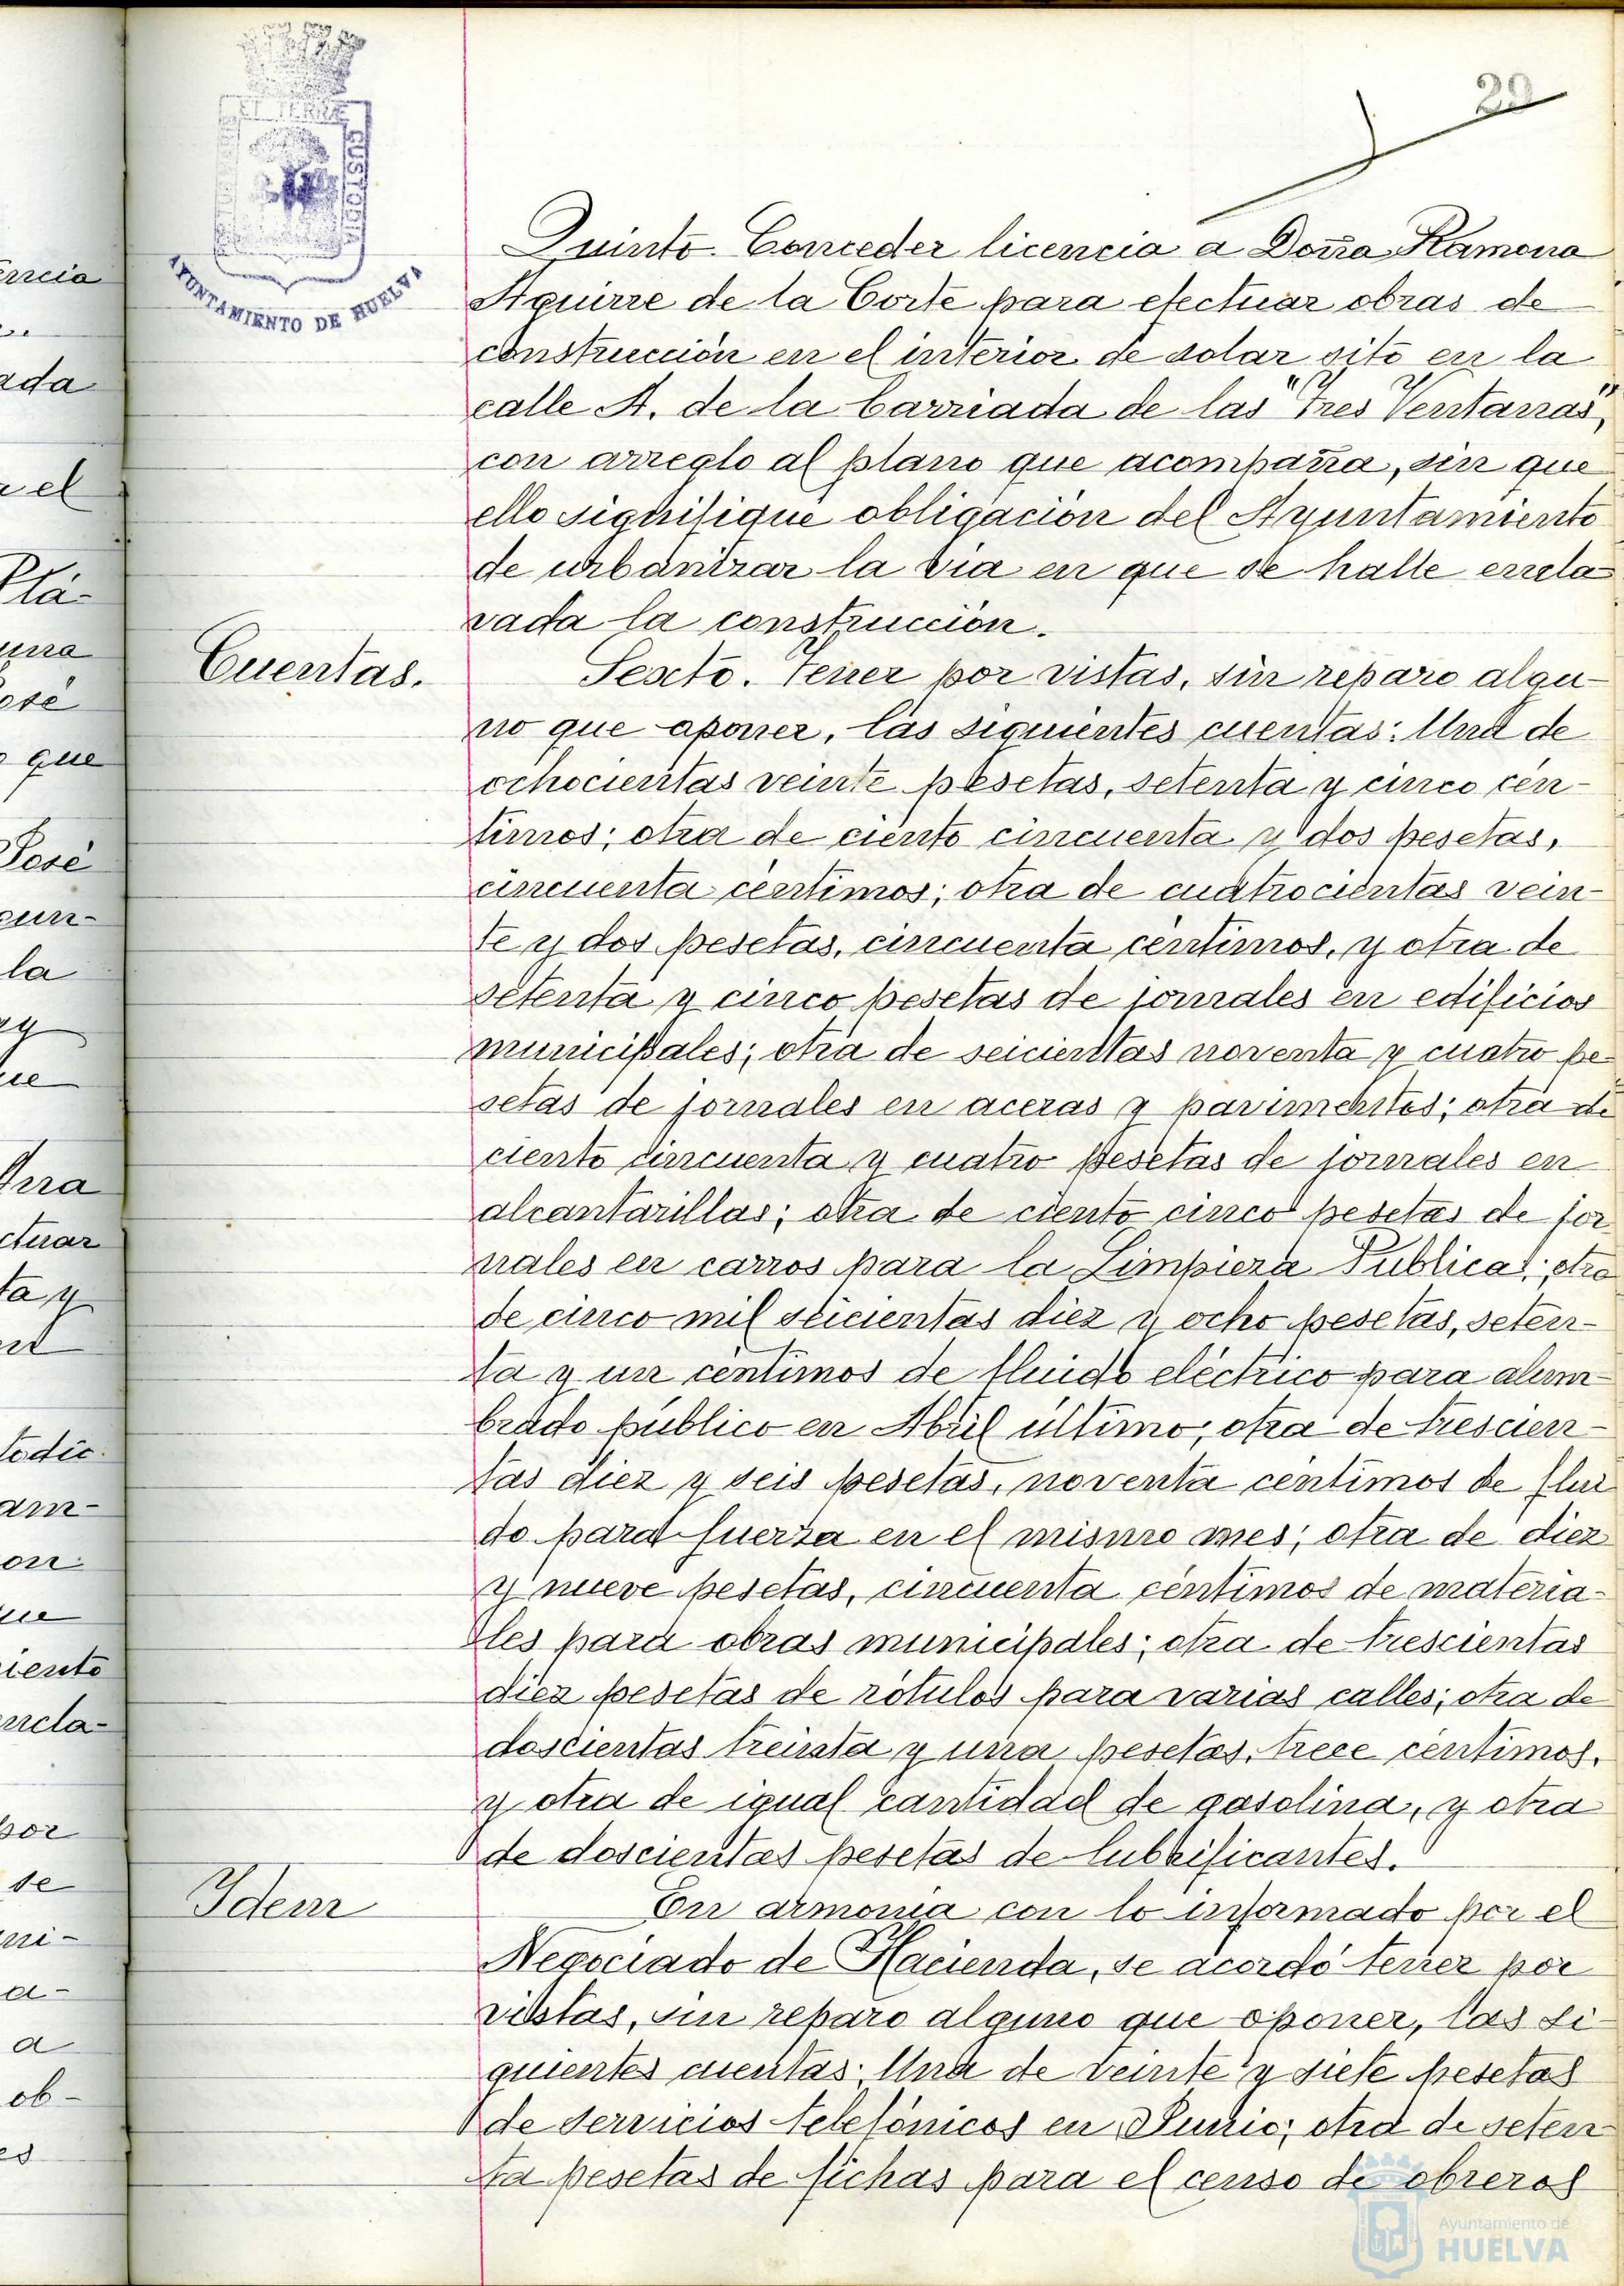 29
PORTUS MARIS
ET TERRAE
CUSTODIA
AYUNTAMIENTO DE HUELVA
Quinto. Conceder licencia a Doña Ramona
Aguirre de la Corte para efectuar obras de
construcción en el interior de solar sito en la
calle A. de la barriada de las "Tres Ventanas",
con arreglo al plano que acompaña, sin que
ello signifique obligación del Ayuntamiento
de urbanizar la via en que se halle encla
vada la construcción.
Cuentas.
Sexto. Tener por vistas, sin reparo algu-
no que aponer, las siguientes cuentas: Una de
ochocientas veinte pesetas, setenta y cinco cén-
timos; otra de ciento cincuenta y dos pesetas,
cincuenta céntimos; otra de cuatrocientas vein-
te y dos pesetas, cincuenta céntimos, y otra de
setenta y cinco pesetas de jornales en edificios
municipales; otra de seicientas noventa y cuatro pe
setas de jornales en aceras y pavimentos; otra de
ciento cincuenta y cuatro pesetas de jornales en
alcantarillas; otra de ciento cinco pesetas de jor
nales en carros para la Limpieza Publica; otra
de cinco mil seicientas diez y ocho pesetas, seten-
ta y un centimos de fluido eléctrico para alum-
brado público en Abril último; otra de trescien-
tas diez y seis pesetas, noventa centimos de flui
do para fuerza en el mismo mes; otra de diez
y nueve pesetas, cincuenta céntimos de materia-
les para obras municipales; otra de trescientas
diez pesetas de rótulos para varias calles; otra de
doscientas treinta y una pesetas, trece céntimos,
y otra de igual cantidad de gasolina, y otra
de doscientas pesetas de lubrificantes.
Idem
En armonia con lo informado por el
Negociado de Hacienda, se acordó tener por
vistas, sin reparo alguno que oponer, las si-
guientes cuentas: Una de veinte y siete pesetas
de servicios telefónicos en Junio; otra de seten
ta pesetas de fichas para el censo de obreros
Ayuntamiento de
HUELVA
encia
ada
el
Plá-
una
osé
que
José
cun-
la
ctuar
ta y
todic.
am-
on
iento
encla-
por
se
ni-
a-
a
ob-
es